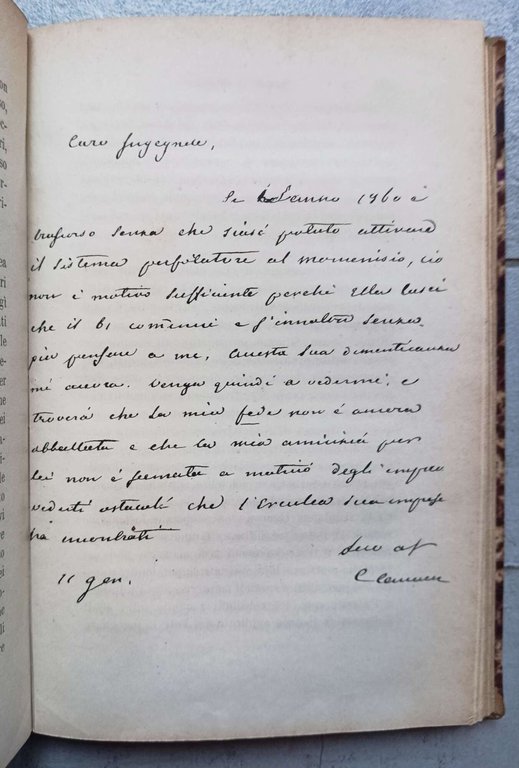 Caro Ingegnere,
Se l'anno 1860 è
trascorso senza che siasi potuto attivare
il sistema perforatore al moncenisio, ciò
non è motivo sufficiente perchè Ella lasci
che il 61 cominci e s'innoltri senza
più pensare a me. Questa sua dimenticanza
mi accora. Venga quindi a vedermi, e
troverà che la mia fede non è ancora
abbattuta e che la mia amicizia per
lei non è scemata a motivo degli impre
veduti ostacoli che l'Erculea sua impresa
ha incontrati
Suo af
11 gen.
C Cavour
on
so,
ri,
so
ri-
ea
ri
gi
ti
le
e-
er
no
ei
a-
di
to
vi
re
no
ei
o-
ne
li
re